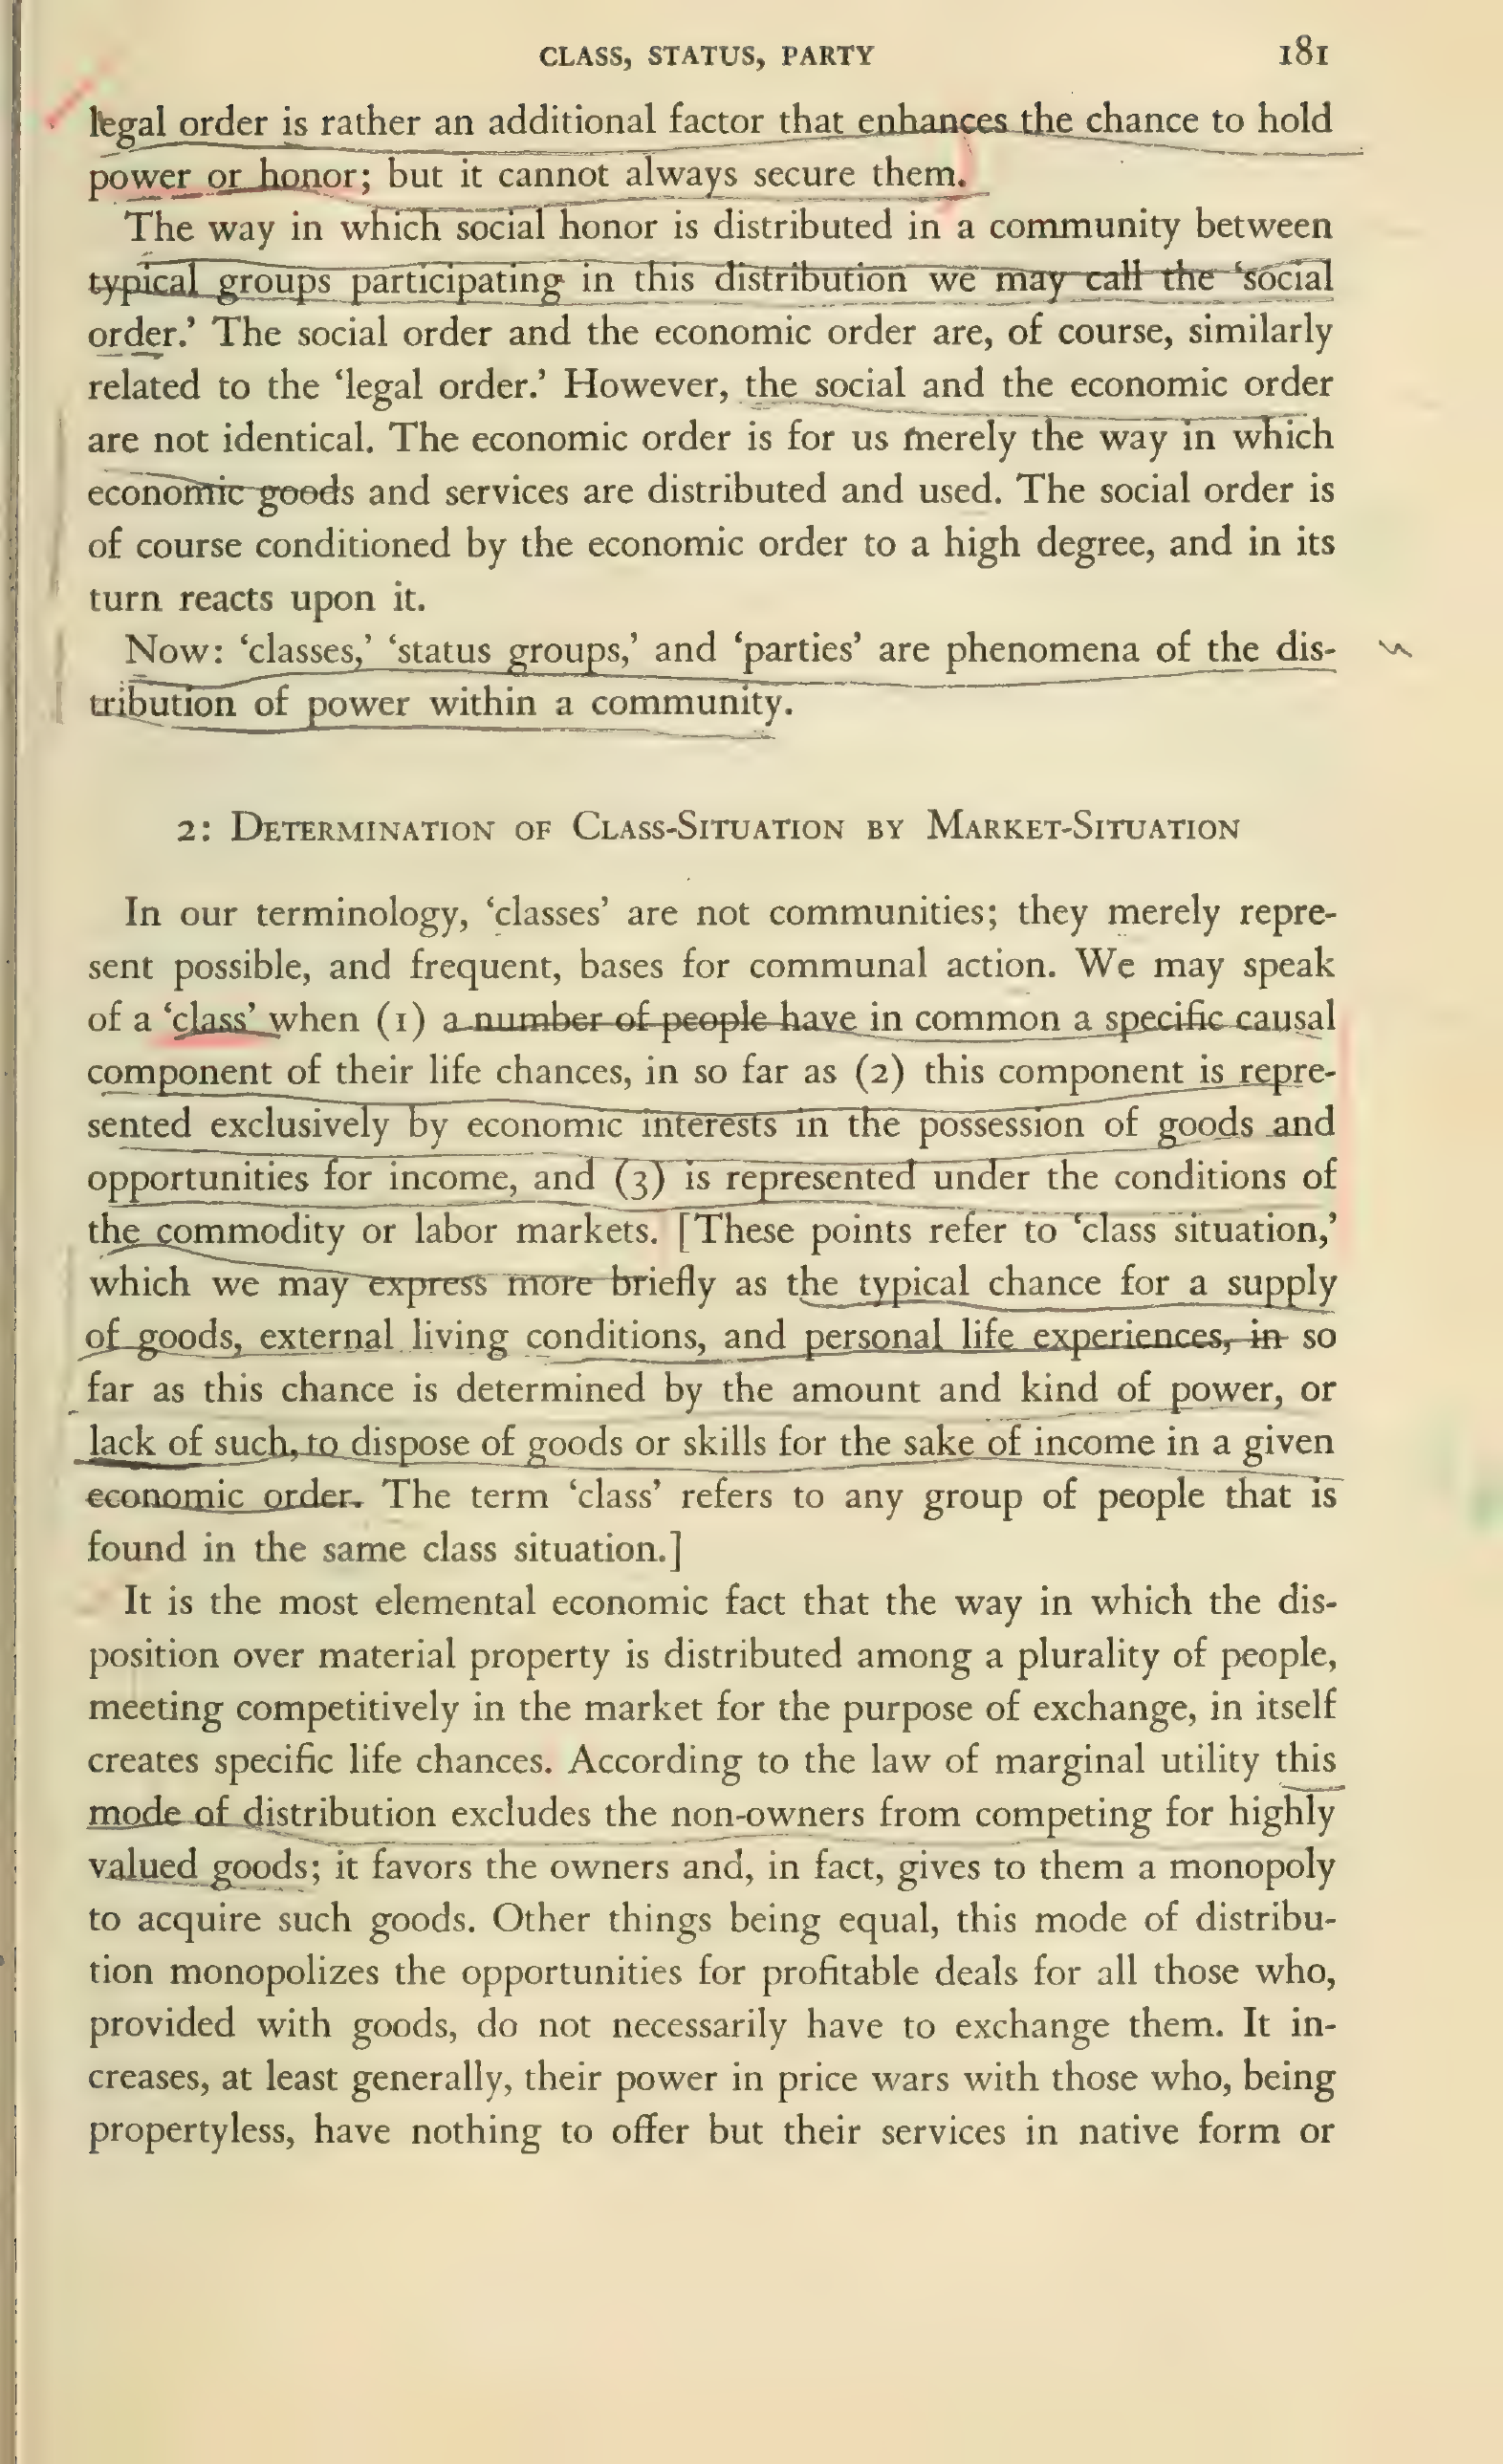 CLASS, STATUS, PARTY 181
legal order is rather an additional factor that enhances the chance to hold
power or honor; but it cannot always secure them.
The way in which social honor is distributed in a community between
typical groups participating in this distribution we may call the ‘social
order.’ The social order and the economic order are, of course, similarly
related to the ‘legal order.’ However, the social and the economic order
are not identical. The economic order is for us merely the way in which
economic goods and services are distributed and used. The social order is
of course conditioned by the economic order to a high degree, and in its
turn reacts upon it.
Now: ‘classes,’ ‘status groups,’ and ‘parties’ are phenomena of the dis-
tribution of power within a community.
2: Determination of Class-Situation by Market-Situation
In our terminology, ‘classes’ are not communities; they merely repre-
sent possible, and frequent, bases for communal action. We may speak
of a ‘class’ when (1) a number of people have in common a specific causal
component of their life chances, in so far as (2) this component is repre-
sented exclusively by economic interests in the possession of goods and
opportunities for income, and (3) is represented under the conditions of
the commodity or labor markets. [These points refer to ‘class situation,’
which we may express more briefly as the typical chance for a supply
of goods, external living conditions, and personal life experiences, in so
far as this chance is determined by the amount and kind of power, or
lack of such, to dispose of goods or skills for the sake of income in a given
economic order. The term ‘class’ refers to any group of people that is
found in the same class situation.]
It is the most elemental economic fact that the way in which the dis-
position over material property is distributed among a plurality of people,
meeting competitively in the market for the purpose of exchange, in itself
creates specific life chances. According to the law of marginal utility this
mode of distribution excludes the non-owners from competing for highly
valued goods; it favors the owners and, in fact, gives to them a monopoly
to acquire such goods. Other things being equal, this mode of distribu-
tion monopolizes the opportunities for profitable deals for all those who,
provided with goods, do not necessarily have to exchange them. It in-
creases, at least generally, their power in price wars with those who, being
propertyless, have nothing to offer but their services in native form or